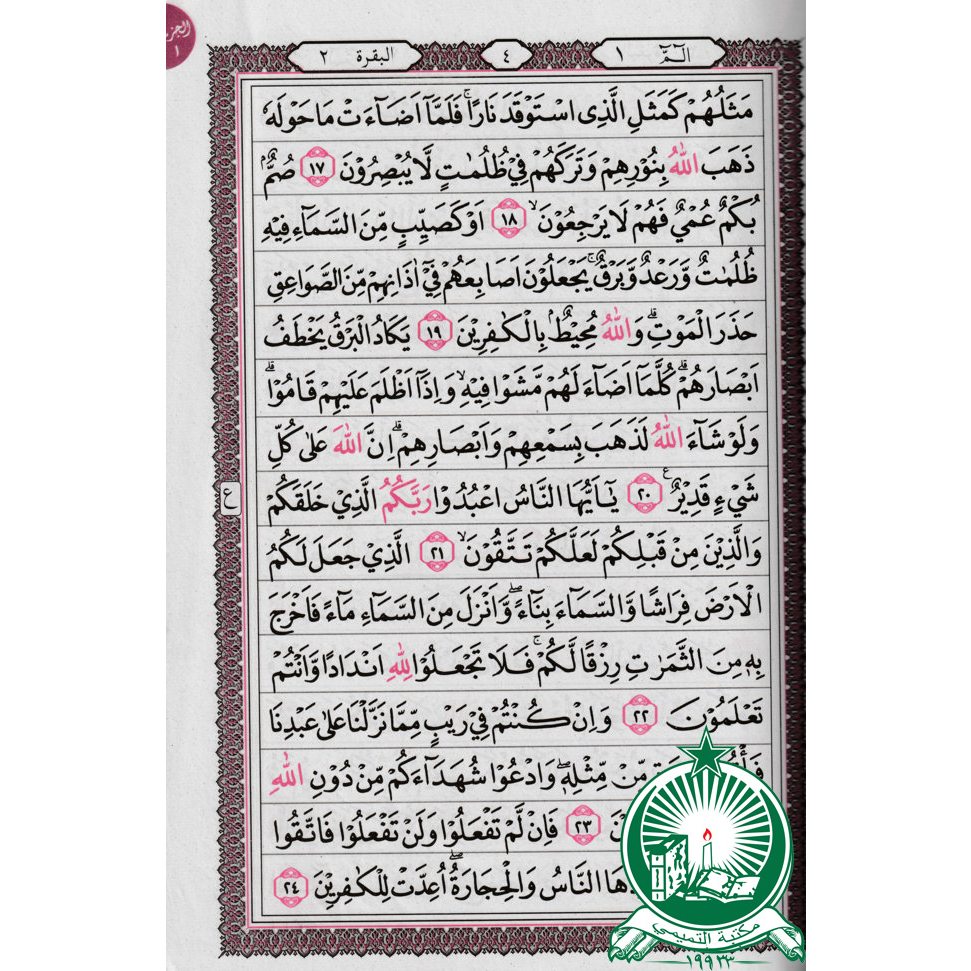 الجزء ١
الٓمّٓ ١
٤
البقرة ٢
مَثَلُهُمْ كَمَثَلِ الَّذِى اسْتَوْقَدَ نَارًا ۚ فَلَمَّاۤ اَضَآءَتْ مَا حَوْلَهٗ
ذَهَبَ اللّٰهُ بِنُوْرِهِمْ وَتَرَكَهُمْ فِيْ ظُلُمٰتٍ لَّا يُبْصِرُوْنَ ١٧ صُمٌّۢ
بُكْمٌ عُمْيٌ فَهُمْ لَا يَرْجِعُوْنَ ۙ ١٨ اَوْ كَصَيِّبٍ مِّنَ السَّمَآءِ فِيْهِ
ظُلُمٰتٌ وَّرَعْدٌ وَّبَرْقٌ ۚ يَجْعَلُوْنَ اَصَابِعَهُمْ فِيْٓ اٰذَانِهِمْ مِّنَ الصَّوَاعِقِ
حَذَرَ الْمَوْتِ ؕ وَاللّٰهُ مُحِيْطٌۢ بِالْكٰفِرِيْنَ ١٩ يَكَادُ الْبَرْقُ يَخْطَفُ
اَبْصَارَهُمْ ؕ كُلَّمَاۤ اَضَآءَ لَهُمْ مَّشَوْا فِيْهِ ۙ وَاِذَاۤ اَظْلَمَ عَلَيْهِمْ قَامُوْا ؕ
وَلَوْ شَآءَ اللّٰهُ لَذَهَبَ بِسَمْعِهِمْ وَاَبْصَارِهِمْ ؕ اِنَّ اللّٰهَ عَلٰى كُلِّ
شَيْءٍ قَدِيْرٌ ٢٠ يٰۤاَيُّهَا النَّاسُ اعْبُدُوْا رَبَّكُمُ الَّذِيْ خَلَقَكُمْ
ع
وَالَّذِيْنَ مِنْ قَبْلِكُمْ لَعَلَّكُمْ تَتَّقُوْنَ ۙ ٢١ الَّذِيْ جَعَلَ لَكُمُ
الْاَرْضَ فِرَاشًا وَّالسَّمَآءَ بِنَآءً ۖ وَّاَنْزَلَ مِنَ السَّمَآءِ مَآءً فَاَخْرَجَ
بِهٖ مِنَ الثَّمَرٰتِ رِزْقًا لَّكُمْ ۚ فَلَا تَجْعَلُوْا لِلّٰهِ اَنْدَادًا وَّاَنْتُمْ
تَعْلَمُوْنَ ٢٢ وَاِنْ كُنْتُمْ فِيْ رَيْبٍ مِّمَّا نَزَّلْنَا عَلٰى عَبْدِنَا
مِّنْ مِّثْلِهٖ ۖ وَادْعُوْا شُهَدَآءَكُمْ مِّنْ دُوْنِ اللّٰهِ
٢٣ فَاِنْ لَّمْ تَفْعَلُوْا وَلَنْ تَفْعَلُوْا فَاتَّقُوا
النَّاسُ وَالْحِجَارَةُ ۖ اُعِدَّتْ لِلْكٰفِرِيْنَ ٢٤
مكتبة التميمي
١٩٩٣٣